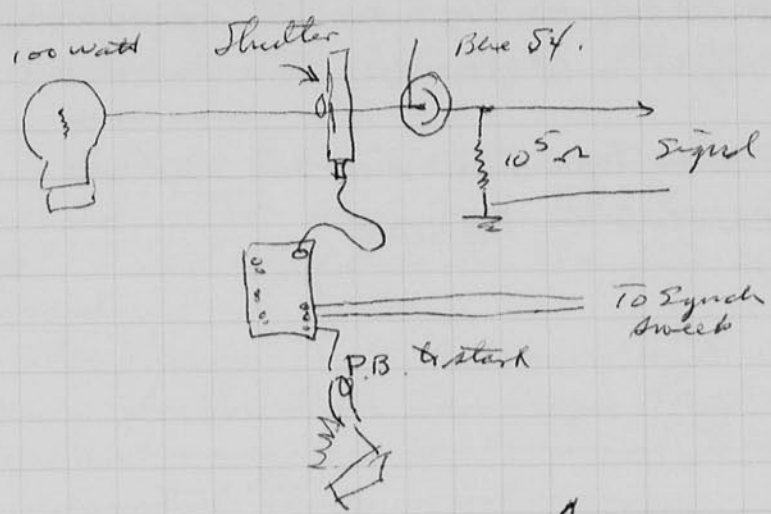 100 watt
Shutter
Blue S4.
10⁵ Ω
Signal
To Synch
sweep
P.B. to start